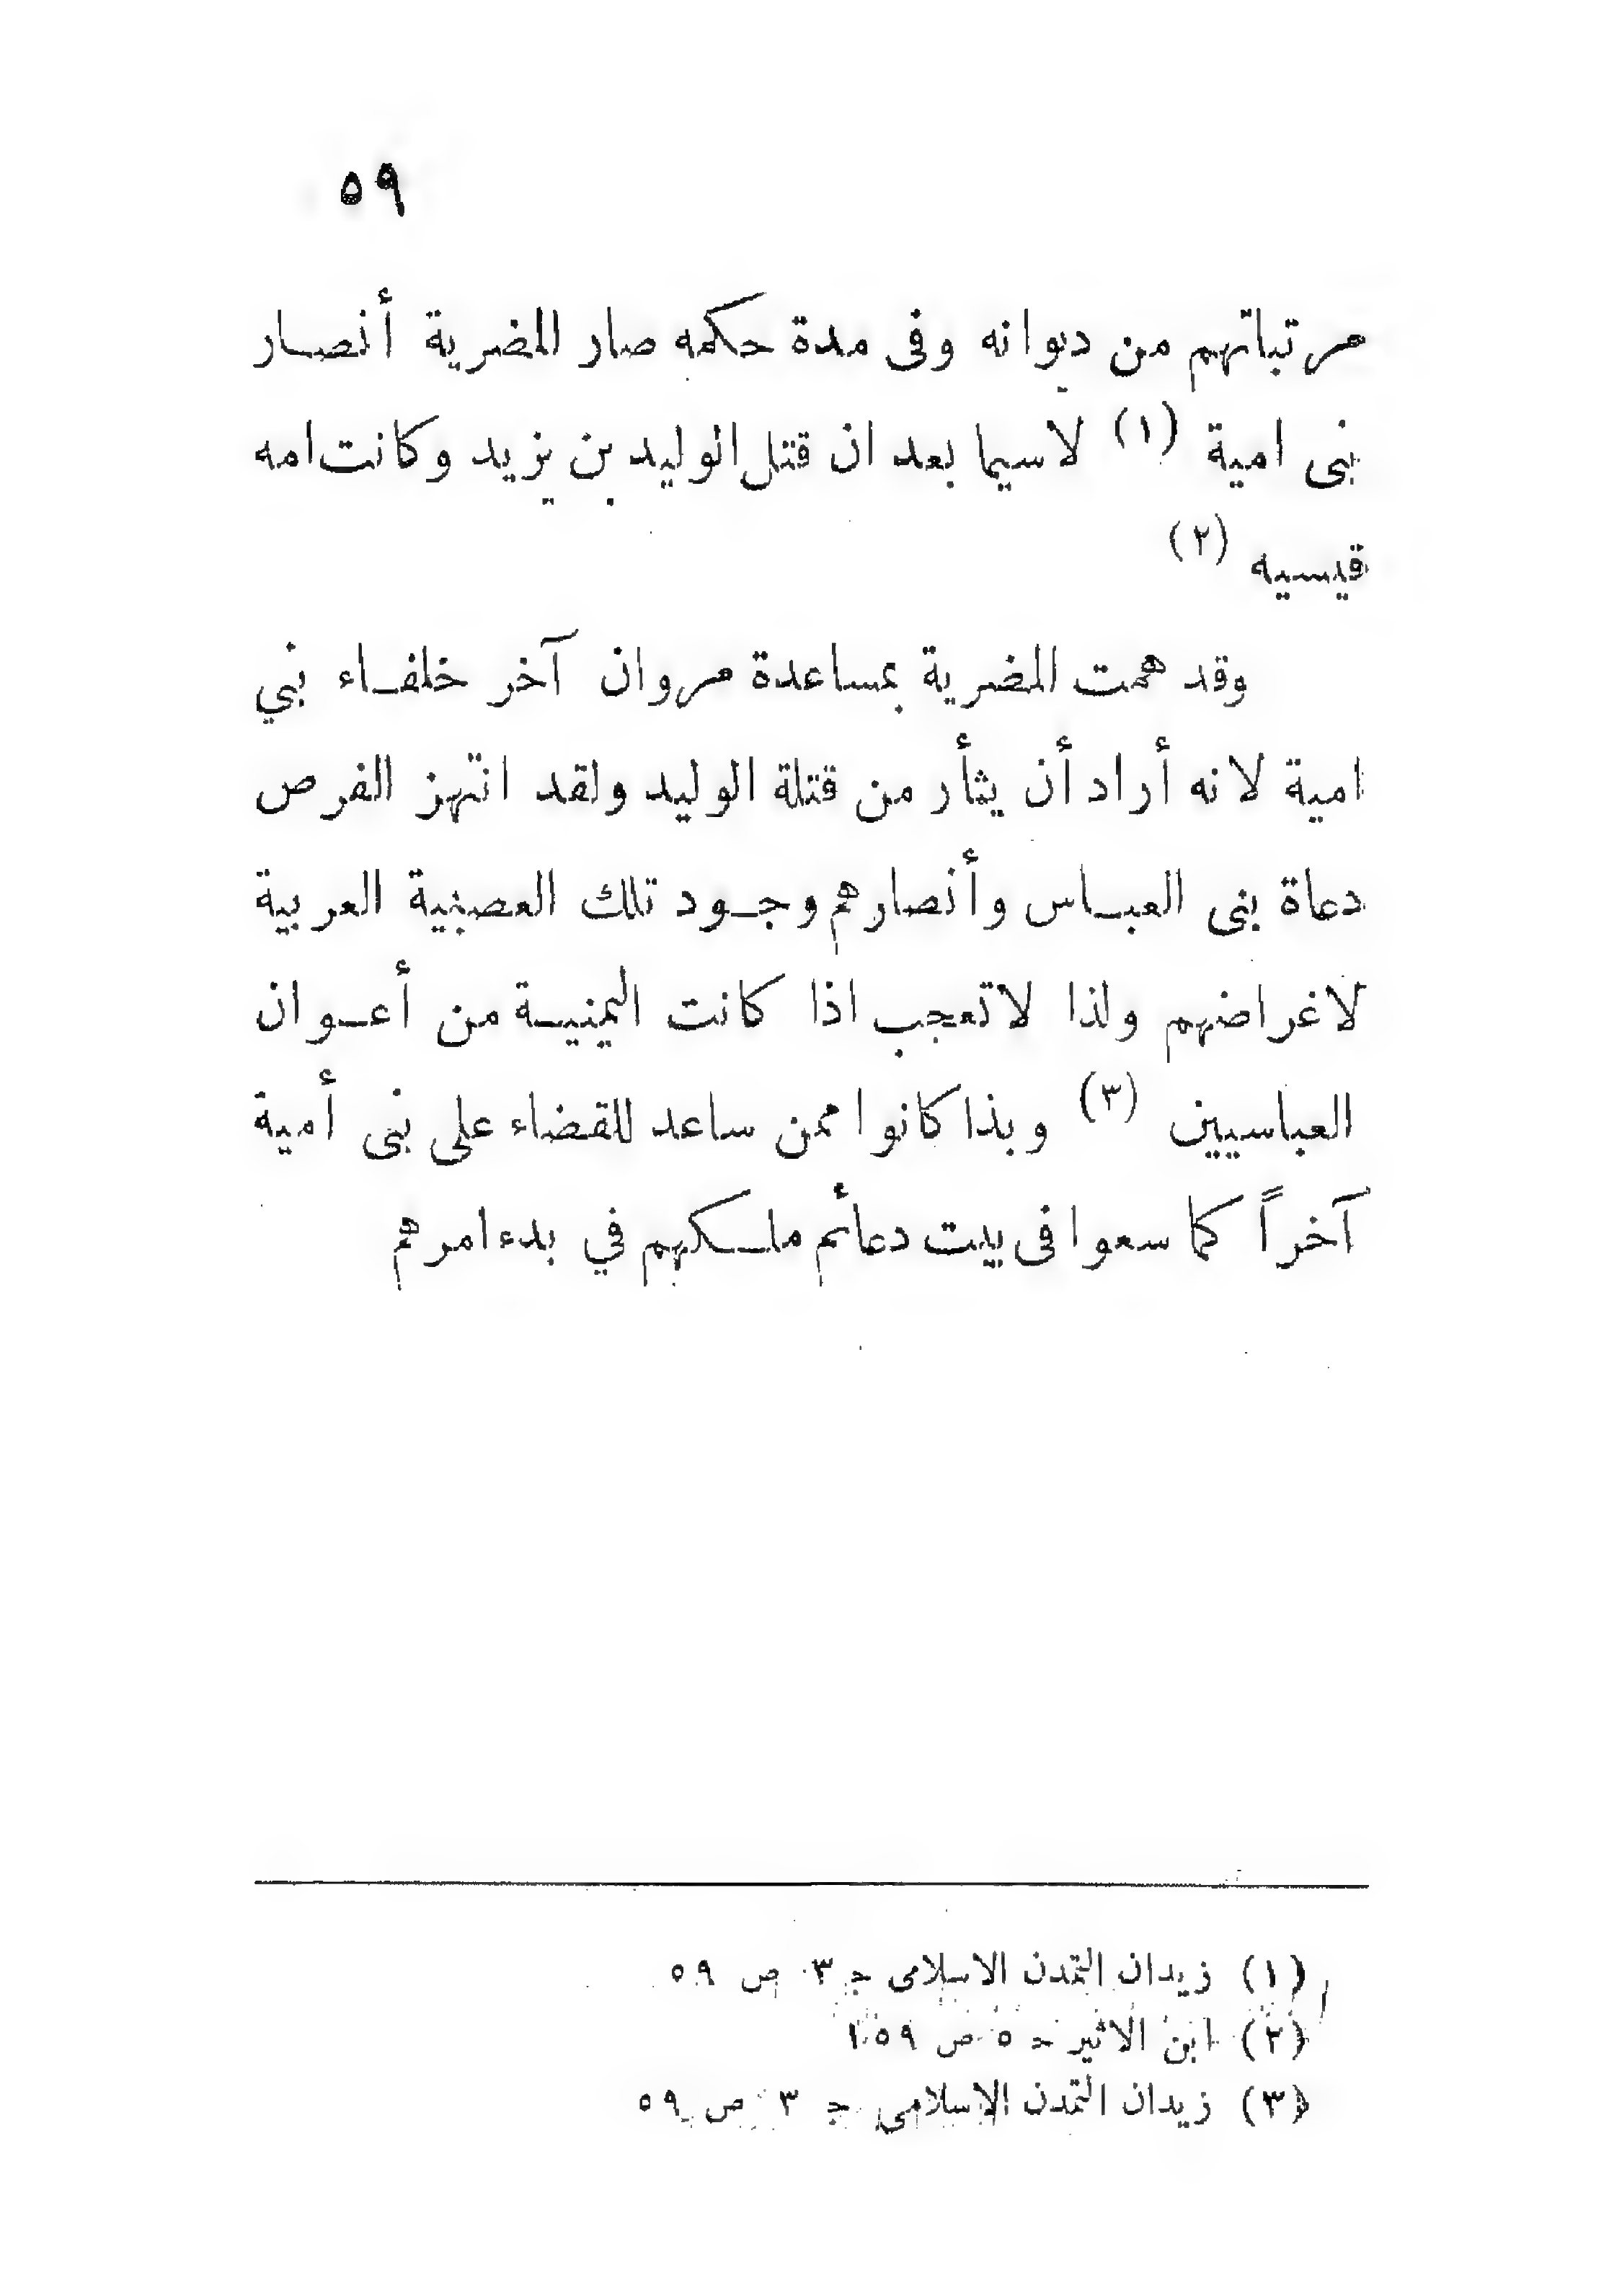 ٥٩
مرتباتهم من ديوانه وفى مدة حكمه صار المضرية أنصار
بنى امية (١) لاسيما بعد ان قتل الوليد بن يزيد وكانت امه
قيسيه (٢)
وقد همت المضرية بمساعدة مروان آخر خلفاء بني
امية لانه أراد أن يثأر من قتلة الوليد ولقد انتهز الفرص
دعاة بنى العباس وأنصارهم وجود تلك العصبية العربية
لاغراضهم ولذا لاتعجب اذا كانت اليمنية من أعوان
العباسيين (٣) وبذا كانوا ممن ساعد للقضاء على بنى أمية
آخراً كما سعوا فى بيت دعائم ملكهم في بدء امرهم
(١) زيدان التمدن الاسلامى ج ٣ ص ٥٩
(٢) ابن الاثير ح ٥ ص ١٥٩
(٣) زيدان التمدن الاسلامى ج ٣ ص ٥٩